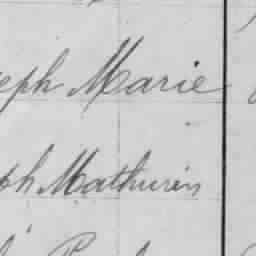 eph Marie
ph Mathurin